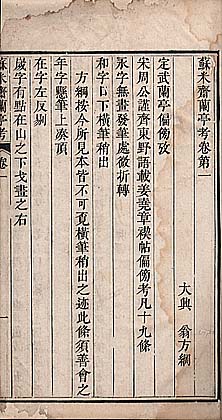 蘇米齋蘭亭考卷第一
大興　翁方綱
定武蘭亭偏傍攷
宋周公謹齊東野語載姜堯章禊帖偏傍考凡十九條
永字無畫發筆處微折轉
和字口下橫筆稍出
方綱按今所見本皆不可覓橫筆稍出之迹此條須善會之
年字懸筆上湊頂
在字左反剔
歲字有點在山之下戈畫之右
蘇米齋蘭亭考
卷一